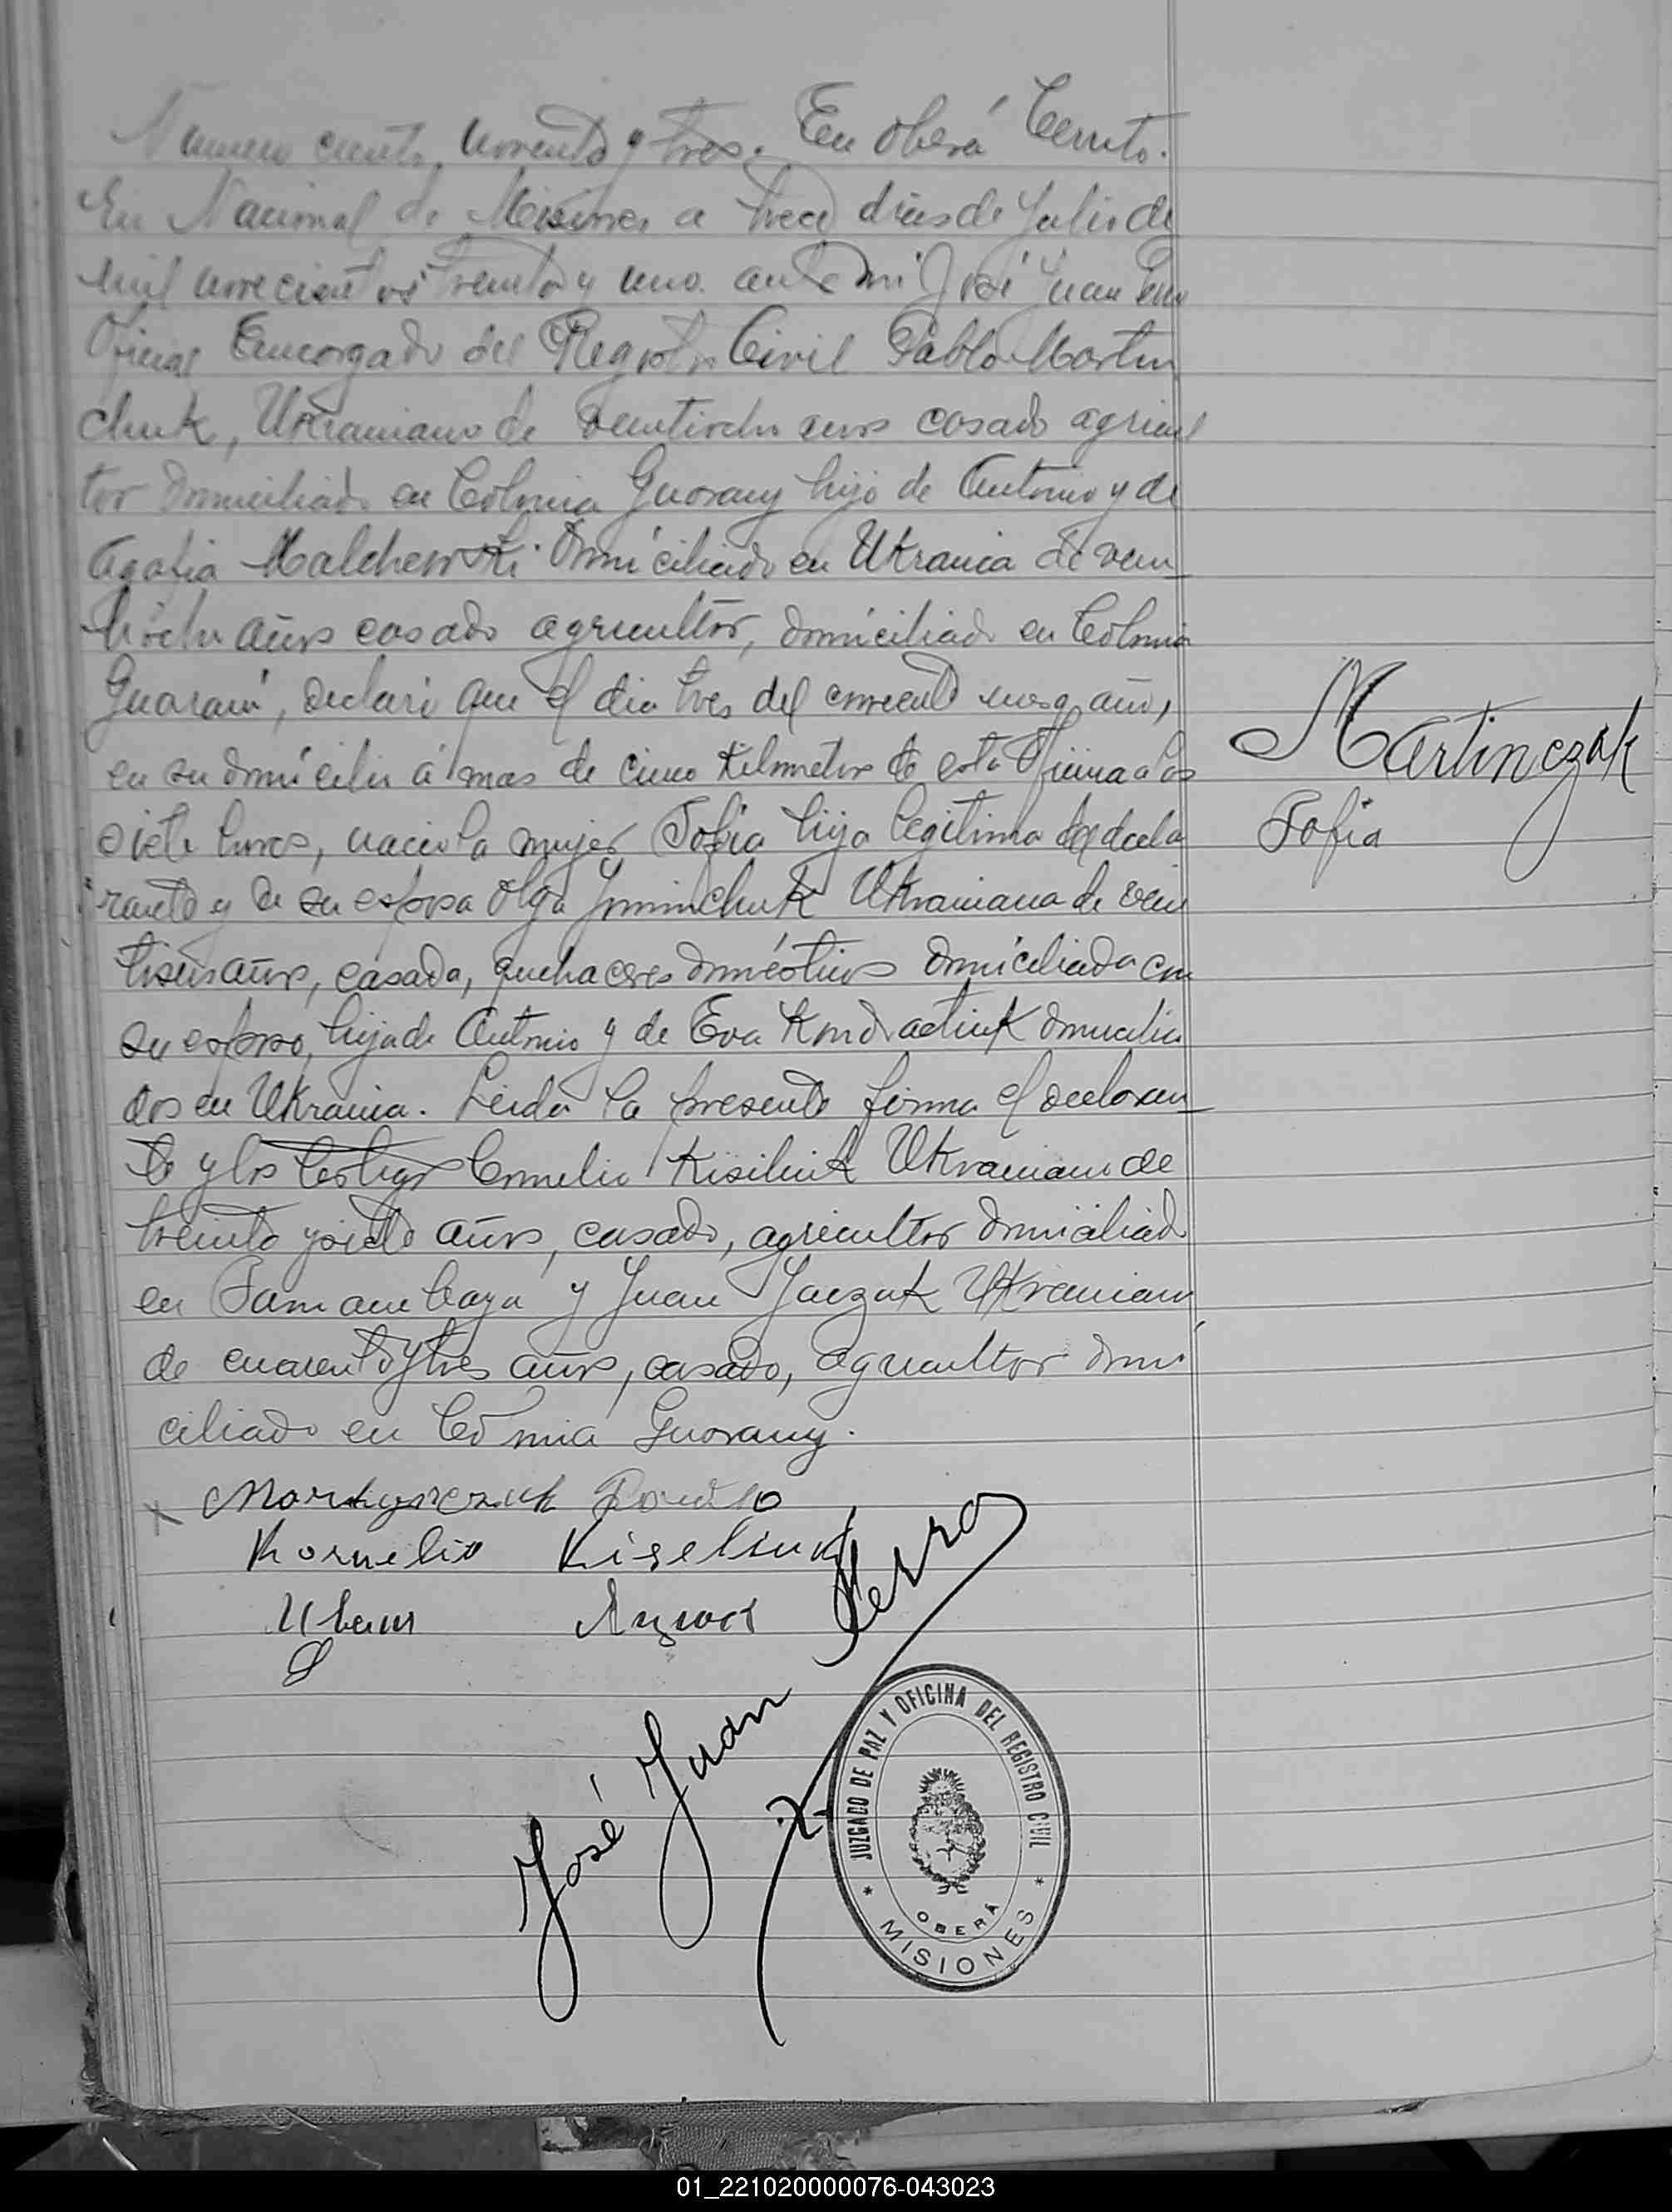 Numero ciento noventa y tres. En Oberá Territo.
rio Nacional de Misiones a trece dias de Julio de
mil novecientos treinta y uno ante mi José Juan
Oficial Encargado del Registro Civil Pablo Martin
chuk, Ukraniano de veintiocho años casado agricul
tor domiciliado en Colonia Guarany hijo de Antonio y de
Agafia Malchewski domiciliado en Ukrania de vein_
tiocho años casado agricultor, domiciliado en Colonia
Guaraní, declaró que el dia tres del corriente mes y año,
en su domicilio á mas de cinco Kilometros de esta Oficina a las
siete horas, nació la mujer Sofia hija legitima del decla
rante y de su esposa Olga Ukraniana de vein
tiseis años, casada, quehaceres domésticos domiciliada con
su esposo, hija de Antonio y de Eva Kondratiuk domicilia
dos en Ukrania. Leida la presente firma el declaran_
te y los testigos Cornelio Kisiliuk Ukraniano de
treinta y siete años, casado, agricultor domiciliado
en Tamanbaya y Juan Ukraniano
de cuarenta y tres años, casado, agricultor domi
ciliado en Colonia Guarany.
Martinczak
Sofia
Kornelio Kiseliuk
José Juan Perro
JUZGADO DE PAZ Y OFICINA DEL REGISTRO CIVIL
OBERÁ
* MISIONES *
01_221020000076-043023